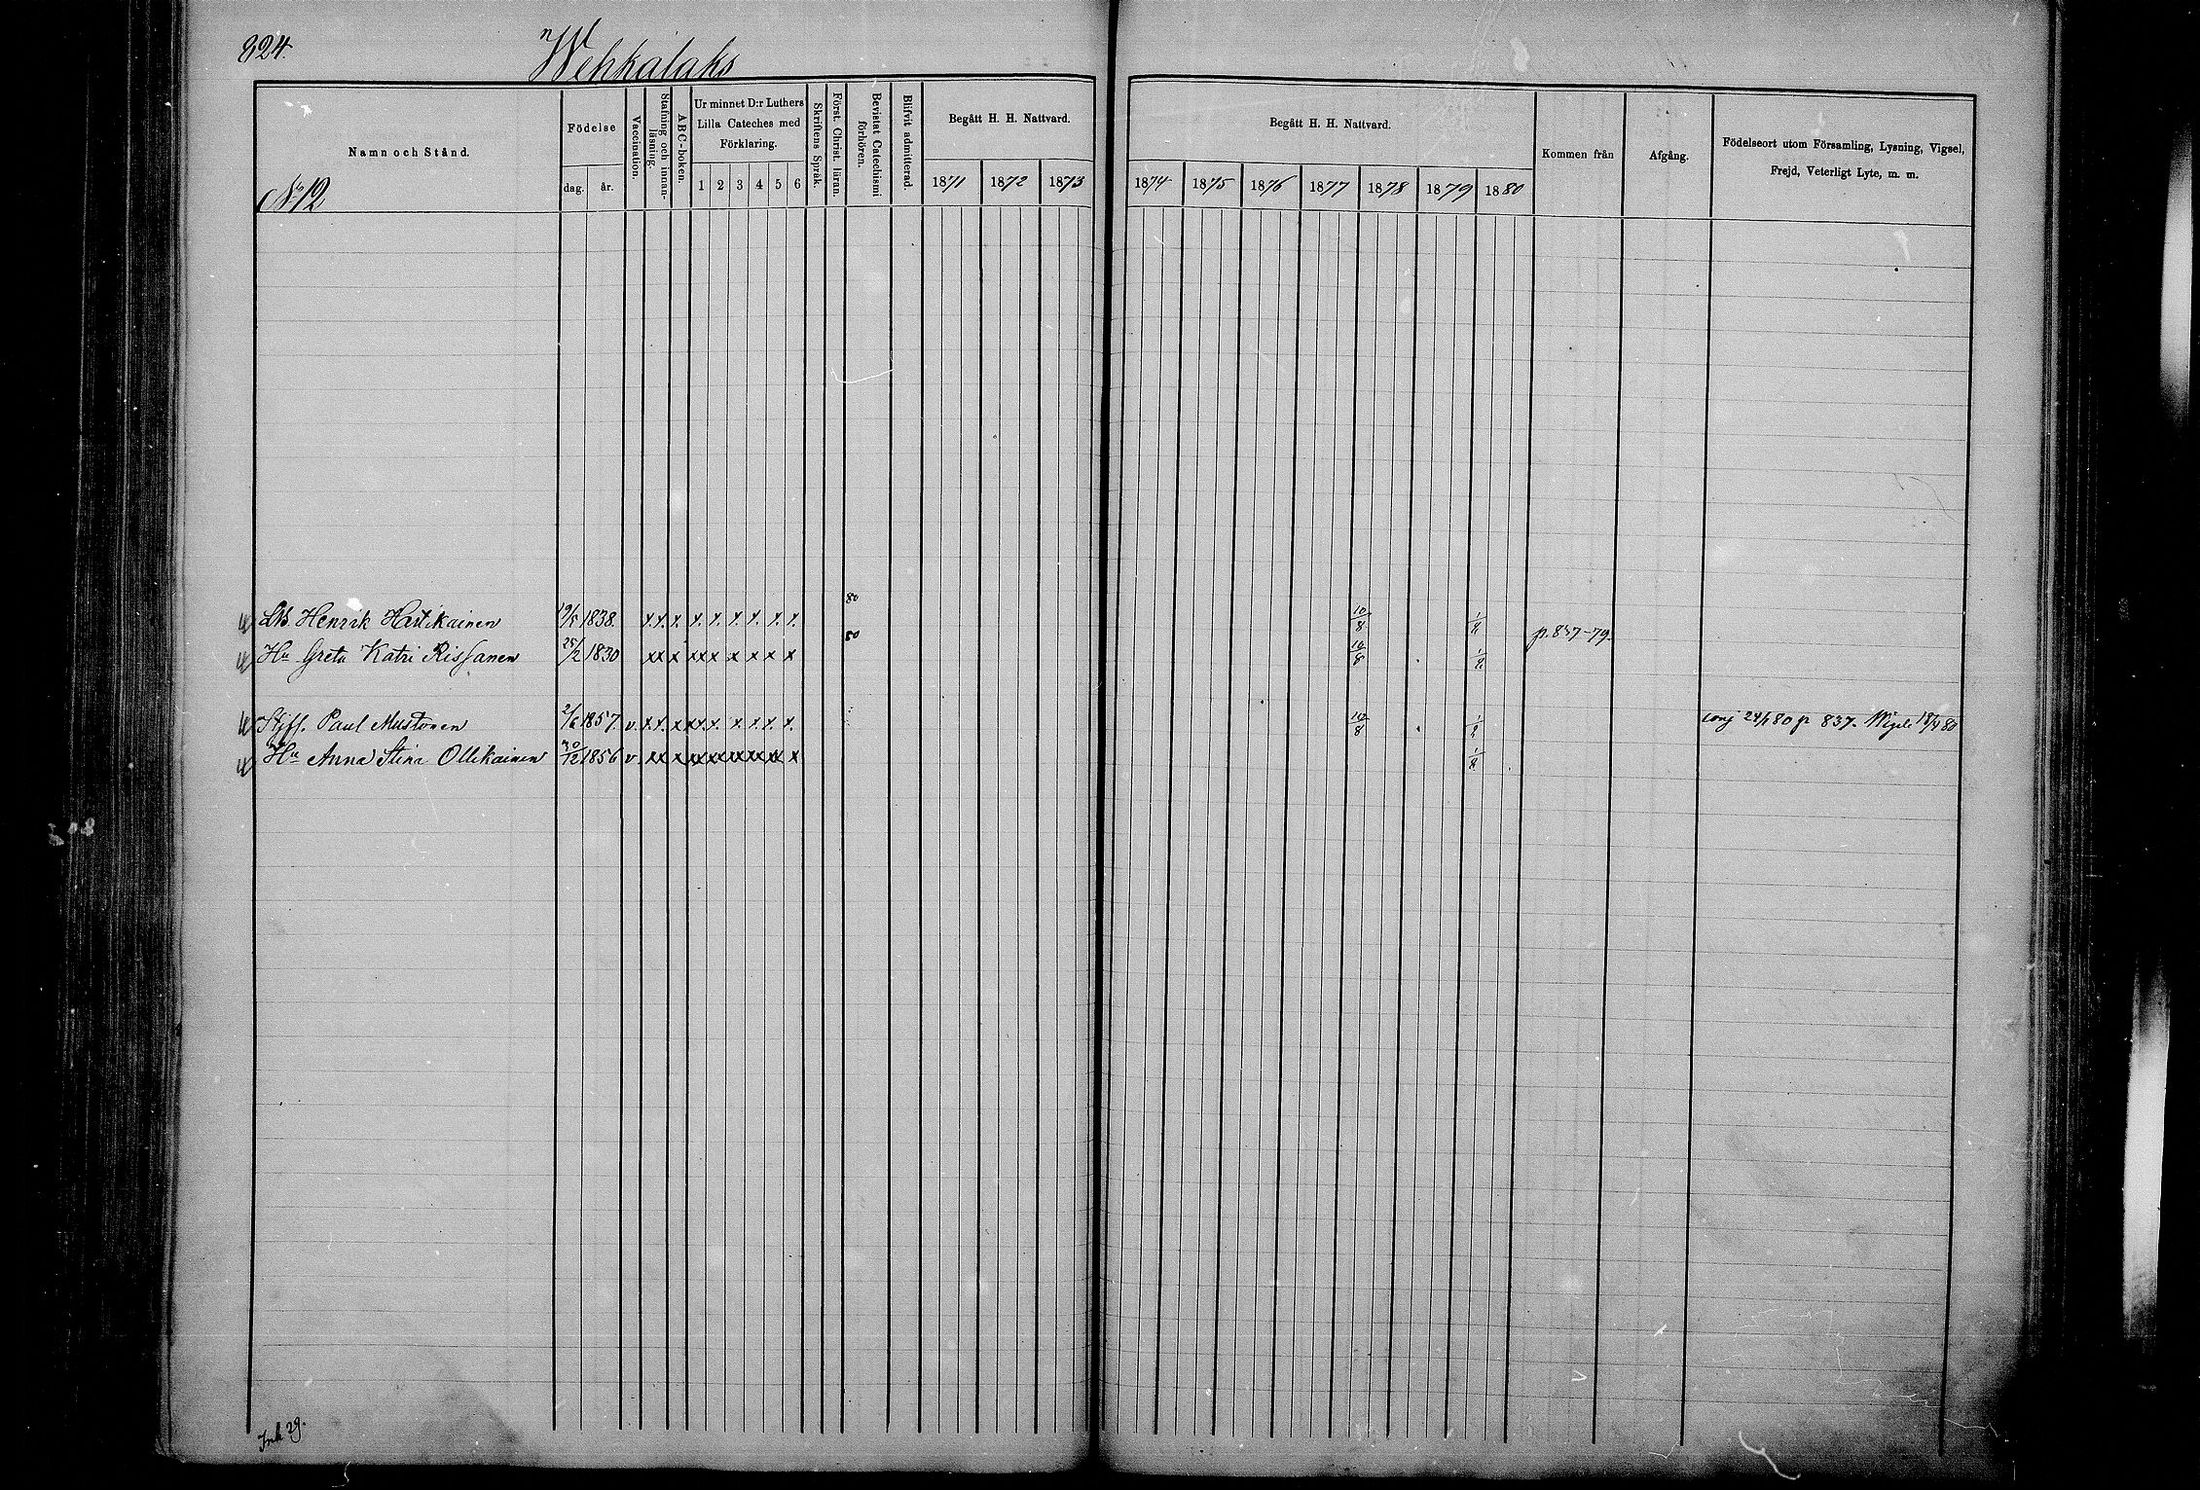 824.
Wehkalaks
Namn och Stånd.
No 12
Födelse
dag. år.
Vaccination.
Stafning och innan-läsning.
ABC-boken.
Ur minnet D:r Luthers Lilla Cateches med Förklaring.
1 2 3 4 5 6
Skriftens Språk.
Först. Christ. läran.
Bevistat Catechismi förhören.
Blifvit admitterad.
Begått H. H. Nattvard.
1871 1872 1873
Begått H. H. Nattvard.
1874 1875 1876 1877 1878 1879 1880
Kommen från
Afgång.
Födelseort utom Församling, Lysning, Vigsel, Frejd, Veterligt Lyte, m. m.
Henrik Hartikainen 19/5 1838. x x. x. x. x. x. x. x. x. 80 10/8 p. 837-79.
Hu Greta Katri Rissanen 25/2 1830 xx x xx x x x x x 80 10/8
Paul Mustonen 2/6 1857. v. x x. x xx x. x. x. x. x. 10/8 24/1 80 p 837. 18/4 80
Hu Anna Stina Ollikainen 30/12 1856 v xx x xx xx xx xx xx x